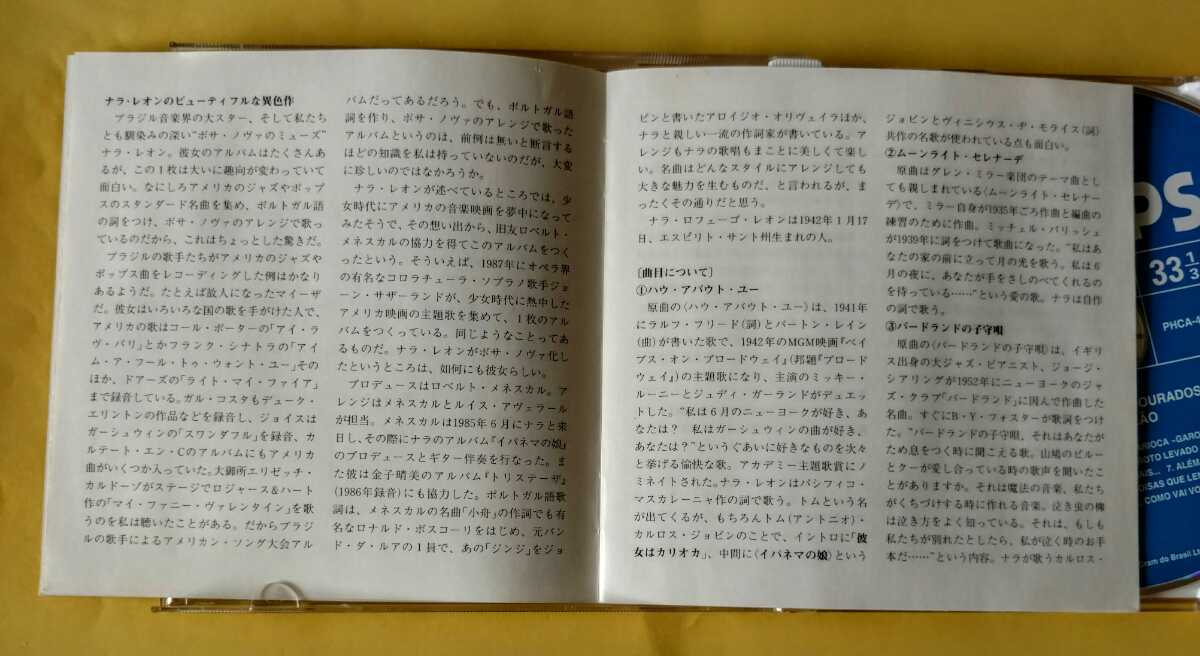 ナラ・レオンのビューティフルな異色作
ブラジル音楽界の大スター、そして私たち
とも馴染みの深い“ボサ・ノヴァのミューズ”
ナラ・レオン。彼女のアルバムはたくさんあ
るが、この1枚は大いに趣向が変わっていて
面白い。なにしろアメリカのジャズやポップ
スのスタンダード名曲を集め、ポルトガル語
の詞をつけ、ボサ・ノヴァのアレンジで歌っ
ているのだから、これはちょっとした驚きだ。
ブラジルの歌手たちがアメリカのジャズや
ポップス曲をレコーディングした例はかなり
あるようだ。たとえば故人になったマイーザ
だ。彼女はいろいろな国の歌を手がけた人で、
アメリカの歌はコール・ポーターの「アイ・ラ
ヴ・パリ」とかフランク・シナトラの「アイ
ム・ア・フール・トゥ・ウォント・ユー」その
ほか、ドアーズの「ライト・マイ・ファイア」
まで録音している。ガル・コスタもデューク・
エリントンの作品などを録音し、ジョイスは
ガーシュウィンの「スワンダフル」を録音、カ
ルテート・エン・Cのアルバムにもアメリカ
曲がいくつか入っていた。大御所エリゼッチ・
カルドーゾがステージでロジャース&ハート
作の「マイ・ファニー・ヴァレンタイン」を歌
うのを私は聴いたことがある。だからブラジ
ルの歌手によるアメリカン・ソング大会アル
バムだってあるだろう。でも、ポルトガル語
詞を作り、ボサ・ノヴァのアレンジで歌った
アルバムというのは、前例は無いと断言する
ほどの知識を私は持っていないのだが、大変
に珍しいのではなかろうか。
ナラ・レオンが述べているところでは、少
女時代にアメリカの音楽映画を夢中になって
みたそうで、その想い出から、旧友ロベルト・
メネスカルの協力を得てこのアルバムをつく
ったという。そういえば、1987年にオペラ界
の有名なコロラチューラ・ソプラノ歌手ジョ
ーン・サザーランドが、少女時代に熱中した
アメリカ映画の主題歌を集めて、1枚のアル
バムをつくっている。同じようなことってあ
るものだ。ナラ・レオンがボサ・ノヴァ化し
たというところは、如何にも彼女らしい。
プロデュースはロベルト・メネスカル。ア
レンジはメネスカルとルイス・アヴェラール
が担当。メネスカルは1985年6月にナラと来
日し、その際にナラのアルバム『イパネマの娘』
のプロデュースとギター伴奏を行なった。ま
た彼は金子晴美のアルバム『トリステーザ』
(1986年録音)にも協力した。ポルトガル語歌
詞は、メネスカルの名曲「小舟」の作詞でも有
名なロナルド・ボスコーリをはじめ、元バン
ド・ダ・ルアの1員で、あの「ジンジ」をジョ
ビンと書いたアロイジオ・オリヴェイラほか、
ナラと親しい一流の作詞家が書いている。ア
レンジもナラの歌唱もまことに美しくて楽し
い。名曲はどんなスタイルにアレンジしても
大きな魅力を生むものだ、と言われるが、ま
ったくその通りだと思う。
ナラ・ロフェーゴ・レオンは1942年1月17
日、エスピリト・サント州生まれの人。
〔曲目について〕
①ハウ・アバウト・ユー
原曲の〈ハウ・アバウト・ユー〉は、1941年
にラルフ・フリード(詞)とバートン・レイン
(曲)が書いた歌で、1942年のMGM映画『ベイ
ブス・オン・ブロードウェイ』(邦題『ブロード
ウェイ』)の主題歌になり、主演のミッキー・
ルーニーとジュディ・ガーランドがデュエッ
トした。“私は6月のニューヨークが好き、あ
なたは? 私はガーシュウィンの曲が好き、
あなたは?”というぐあいに好きなものを次々
と挙げる愉快な歌。アカデミー主題歌賞にノ
ミネイトされた。ナラはパシフィコ・
マスカレーニャ作の詞で歌う。トムという名
が出てくるが、もちろんトム(アントニオ)・
カルロス・ジョビンのことで、イントロに「彼
女はカリオカ」、中間に〈イパネマの娘〉という
ジョビンとヴィニシウス・ヂ・モライス(詞)
共作の名歌が使われている点も面白い。
②ムーンライト・セレナーデ
原曲はグレン・ミラー楽団のテーマ曲とし
ても親しまれている〈ムーンライト・セレナー
デ〉で、ミラー自身が1935年ごろ作曲と編曲の
練習のために作曲。ミッチェル・パリッシュ
が1939年に詞をつけて歌曲になった。“私はあ
なたの家の前に立って月の光を歌う。私は6
月の夜に、あなたが手をさしのべてくれるの
を待っている……”という愛の歌。ナラは自作
の詞で歌う。
③バードランドの子守唄
原曲の〈バードランドの子守唄〉は、イギリ
ス出身の大ジャズ・ピアニスト、ジョージ・
シアリングが1952年にニューヨークのジャ
ズ・クラブ「バードランド」に因んで作曲した
名曲。すぐにB・Y・フォスターが歌詞をつけ
た。“バードランドの子守唄、それはあなたが
ため息をつく時に聞こえる歌。山鳩のビルー
とクーが愛し合っている時の歌声を聞いたこ
とがありますか。それは魔法の音楽、私たち
がくちづけする時に作れる音楽。泣き虫の柳
は泣き方をよく知っている。それは、もしも
私たちが別れたとしたら、私が泣く時のお手
本だ……”という内容。ナラが歌うカルロス・
PS
33 1/3
PHCA-4
OURADOS
ÃO
ARIOCA -GARO
OTO LEVADO
7. ALÉM
OISAS QUE LE
COMO VAI VO
Gram do Brasil Lt